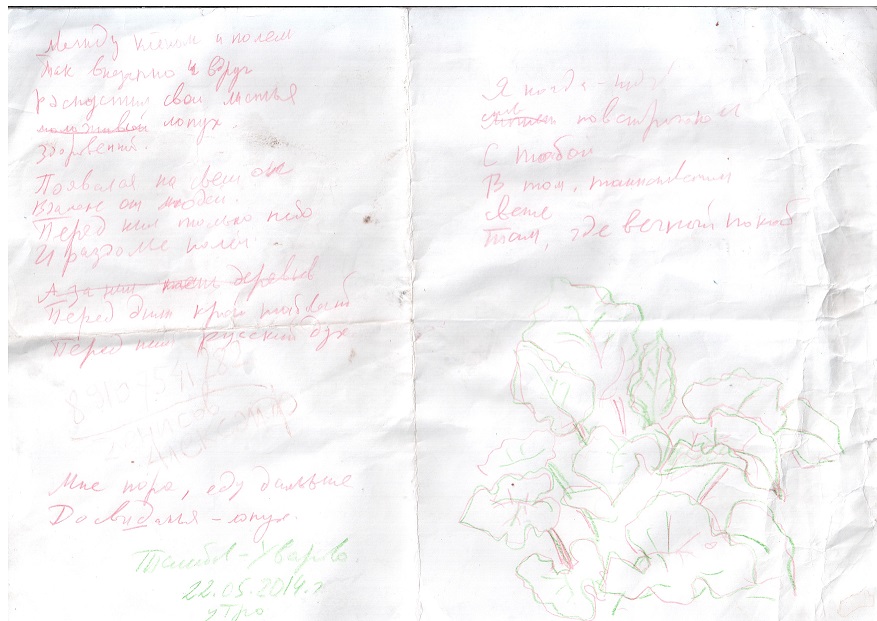 Между клёном и полем
Так внезапно и вдруг
Распустил свои листья
лопух.
Здоровенный.
Появился на свет он
Вдалеке от людей.
Перед ним только небо
И раздолье полей.
А за ним деревьев
Перед ним край
Перед ним русский дух
Александр
Мне пора, еду дальше.
До свиданья – лопух.
Тамбов – Уварово.
22.05.2014 г.
утро
Я когда-нибудь
повстречаюсь
С тобой
В том, таинственном
свете
Там, где вечный покой